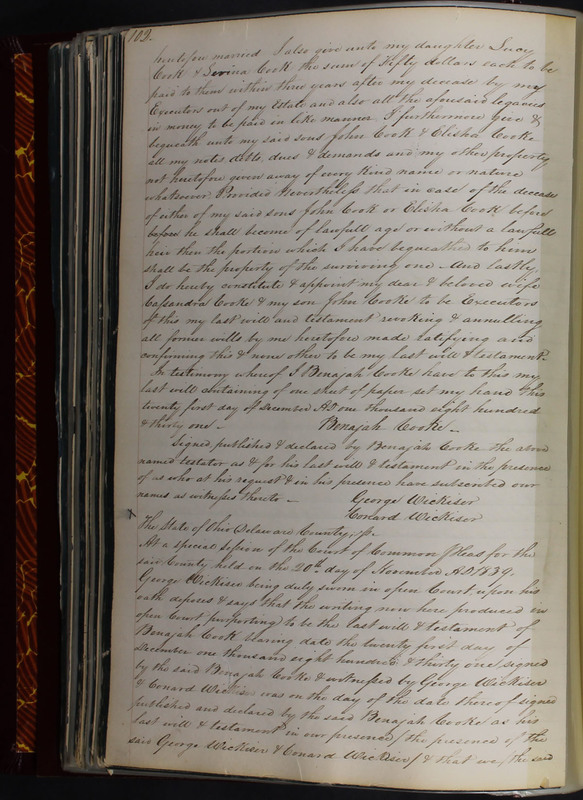 102.
heretofore married I also give unto my daughter Lucy
Cook & Serina Cook the sum of Fifty dollars each to be
paid to them within three years after my decease by my
Executors out of my Estate and also all the aforesaid legacies
in money to be paid in like manner I furthermore give &
bequeath unto my said sons John Cook & Elisha Cooke
all my notes debts, dues & demands and my other property
not heretofore given away of every kind name or nature
whatsoever Provided Nevertheless that in case of the decease
of either of my said sons John Cook or Elisha Cook before
before he shall become of lawfull age or without a lawfull
heir then the portion which I have bequeathed to him
shall be the property of the surviving one And lastly,
I do hereby constitute & appoint my dear & beloved wife
Cassandra Cooke & my son John Cooke to be Executors
of this my last will and testament revoking & annulling
all former wills by me heretofore made ratifying and
confirming this & none other to be my last will & testament
In testimony whereof I Benajah Cooke have to this my
last will containing of one sheet of paper set my hand this
twenty first day of December AD one thousand eight hundred
& thirty one - Benajah Cooke -
Signed published & declared by Benajah Cooke the above
named testator as & for his last will & testament in the presence
of us who at his request & in his presence have subscribed our
names as witnesses thereto -
George Wickiser
Conard Wickiser
The State of Ohio Delaware County, ss.
At a special session of the Court of Common Pleas for the
said County held on the 20th day of November AD 1839,
George Wickiser being duly sworn in open Court upon his
oath deposes & says that the writing now here produced in
open Court purporting to be the last will & testament of
Benajah Cook bearing date the twenty first day of
December one thousand eight hundred & thirty one, signed
by the said Benajah Cooke & witnessed by George Wickiser
& Conard Wickiser was on the day of the date thereof signed
published and declared by the said Benajah Cooke as his
last will & testament in our presence (the presence of the
said George Wickiser & Conard Wickiser) & that we (the said